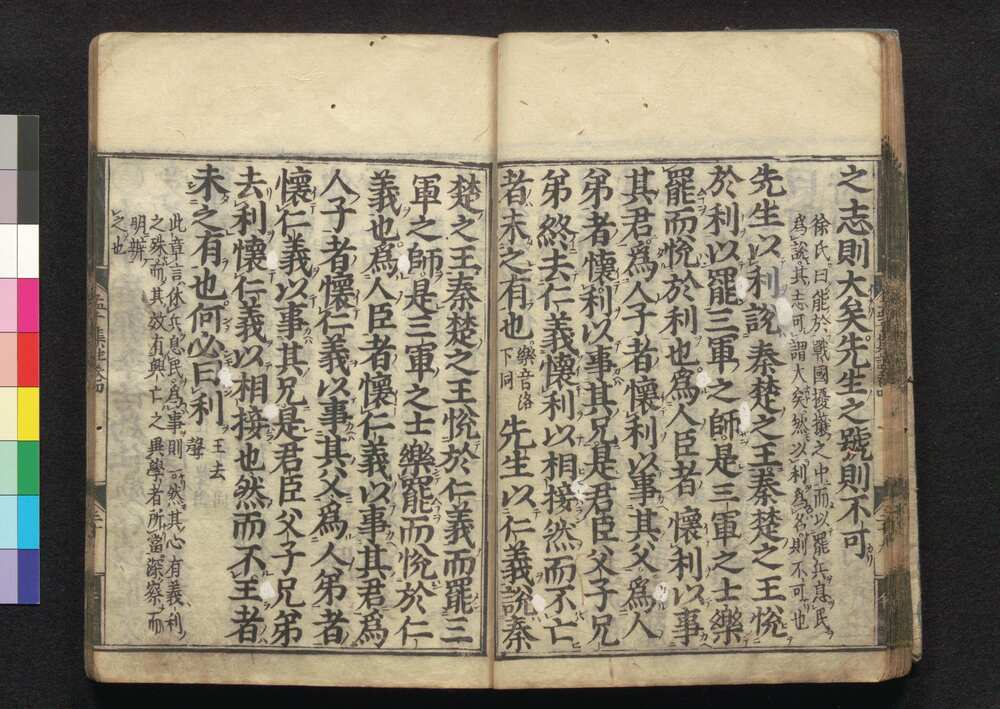 之志則大矣先生之號則不可
徐氏曰能於戰國擾攘之中而以罷兵息民
爲說其志可謂大矣然以利爲名則不可也
先生以利說秦楚之王秦楚之王悅
於利以罷三軍之師是三軍之士樂
罷而悅於利也爲人臣者懷利以事
其君爲人子者懷利以事其父爲人
弟者懷利以事其兄是君臣父子兄
弟終去仁義懷利以相接然而不亡
者未之有也
樂音洛
下同
先生以仁義說秦
楚之王秦楚之王悅於仁義而罷三
軍之師是三軍之士樂罷而悅於仁
義也爲人臣者懷仁義以事其君爲
人子者懷仁義以事其父爲人弟者
懷仁義以事其兄是君臣父子兄弟
去利懷仁義以相接也然而不王者
未之有也何必曰利
王去
聲
此章言休兵息民爲事則一然其心有義利
之殊而其效有興亡之異學者所當深察而
明辨
之也